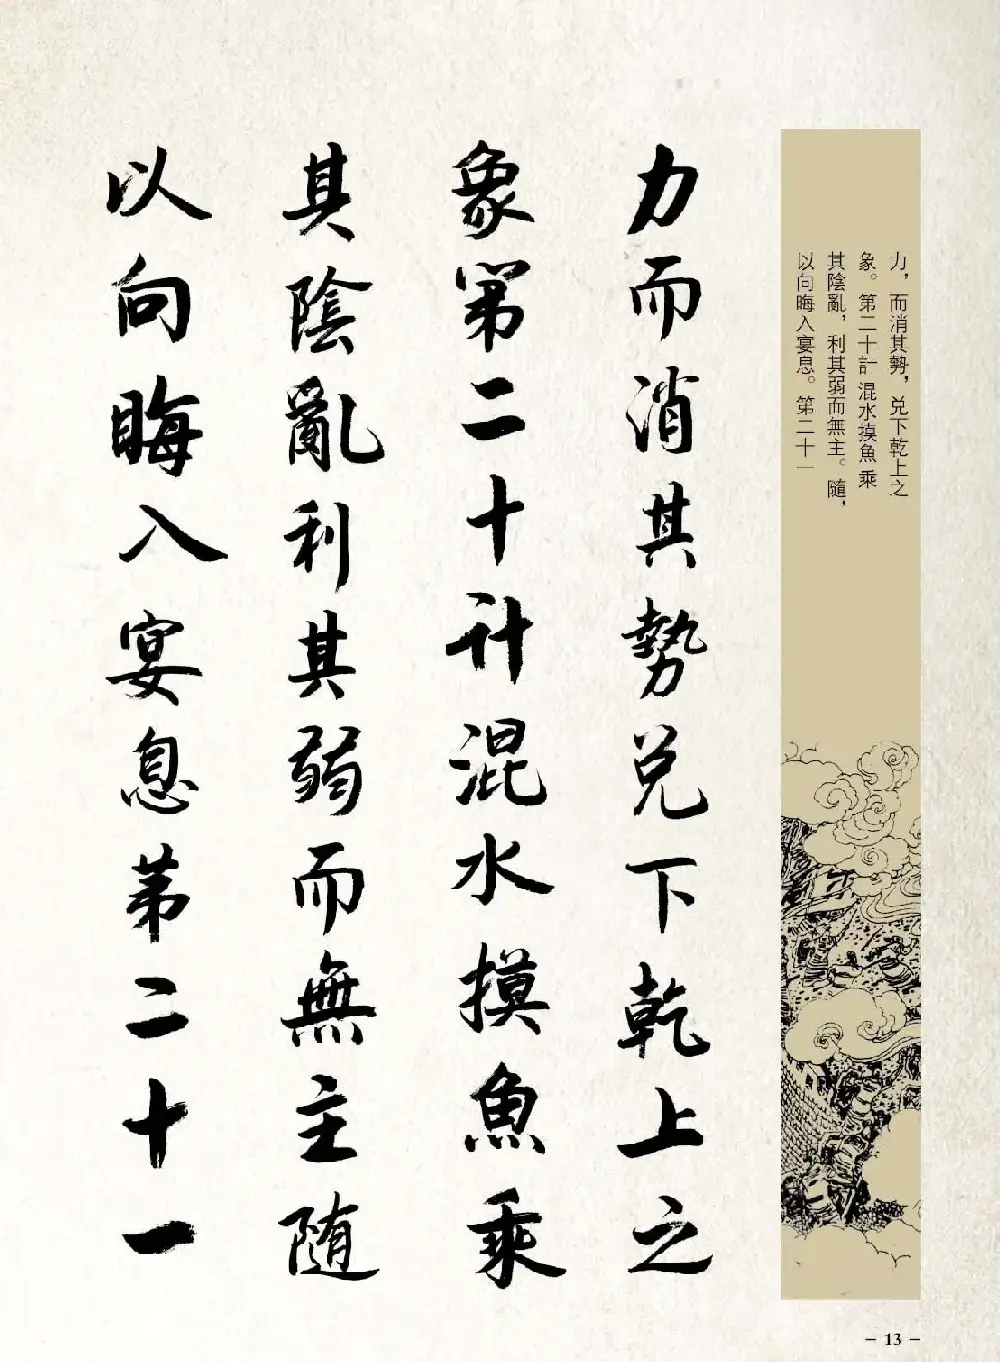 力，而消其勢，兑下乾上之
象。第二十計 混水摸魚 乘
其陰亂，利其弱而無主。隨，
以向晦入宴息。第二十一
力而消其勢兑下乾上之
象第二十计混水摸魚乘
其陰亂利其弱而無主随
以向晦入宴息第二十一
－ 13 －